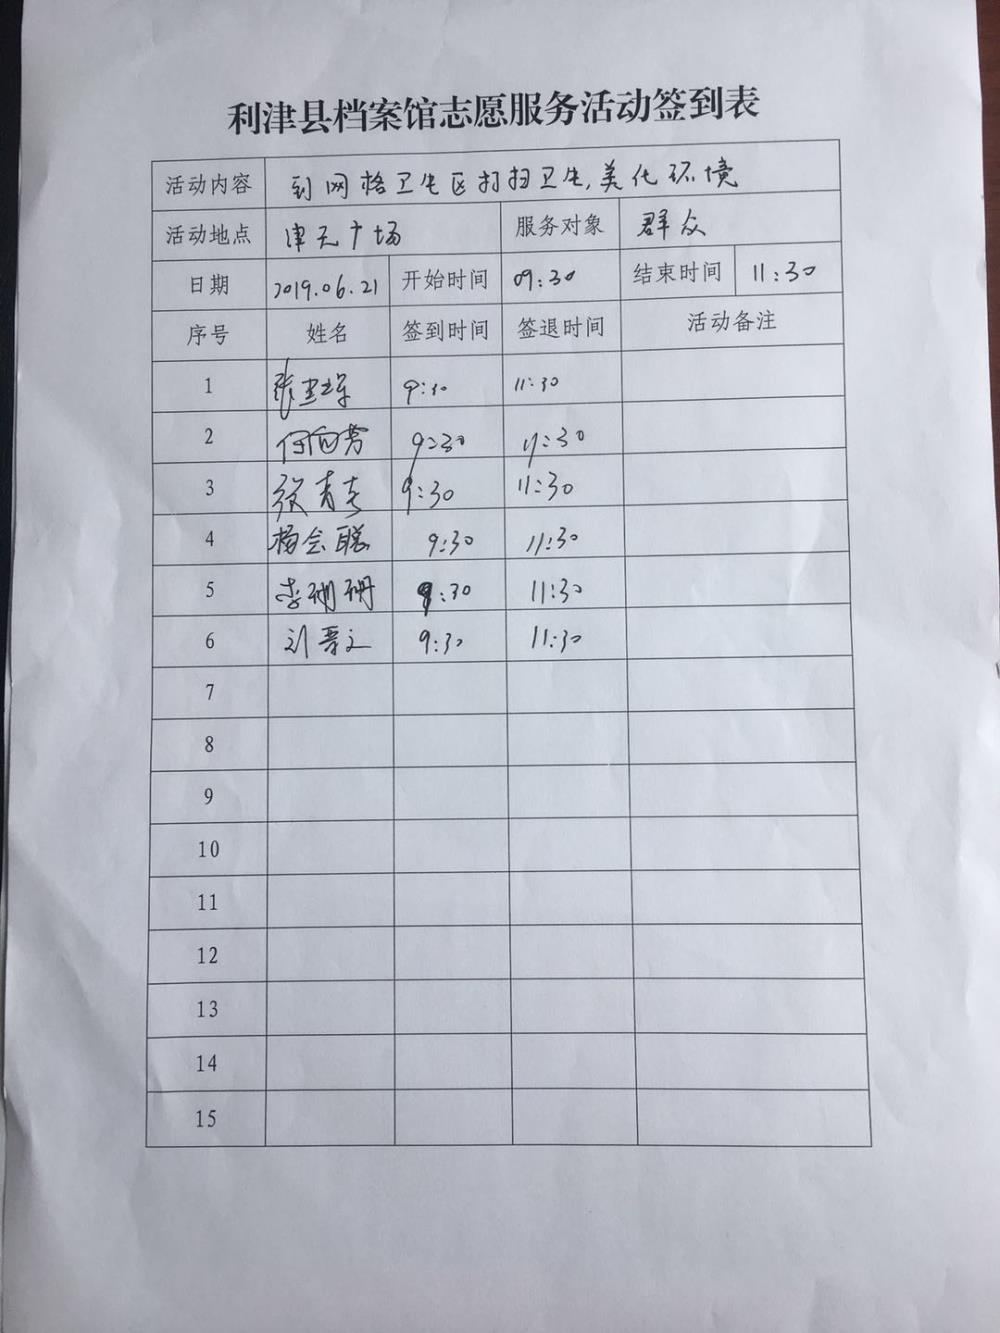 利津县档案馆志愿服务活动签到表
活动内容 到网格卫生区打扫卫生,美化环境
活动地点 津元广场 服务对象 群众
日期 2019.06.21 开始时间 09:30 结束时间 11:30
序号 姓名 签到时间 签退时间 活动备注
1 张 9:30 11:30
2 何向芳 9:30 11:30
3 张青春 9:30 11:30
4 杨会聪 9:30 11:30
5 李珊珊 9:30 11:30
6 刘晋文 9:30 11:30
7
8
9
10
11
12
13
14
15